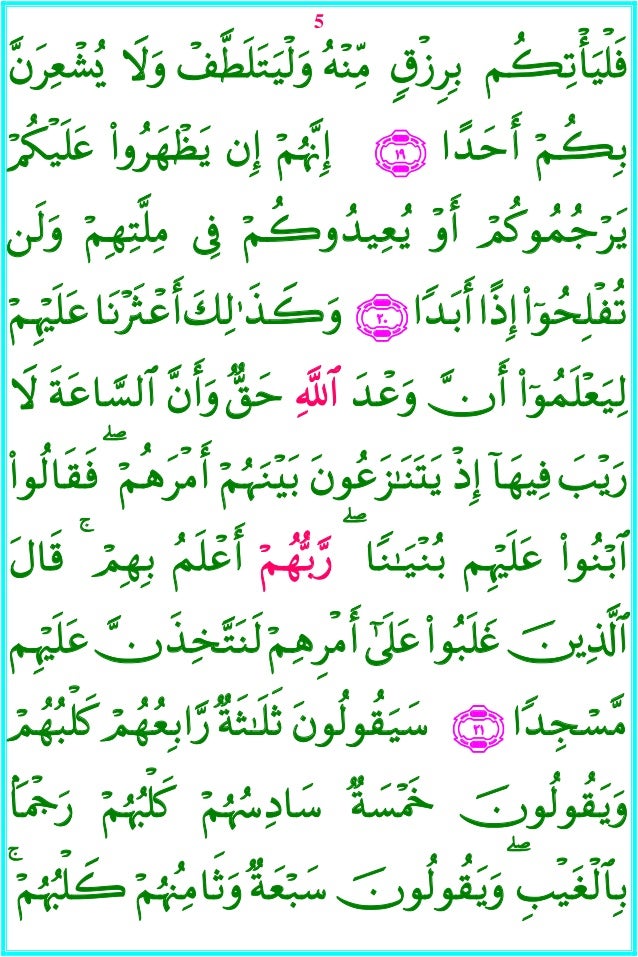 5
فَلْيَأْتِكُم بِرِزْقٍ مِّنْهُ وَلْيَتَلَطَّفْ وَلَا يُشْعِرَنَّ
بِكُمْ أَحَدًا ١٩ إِنَّهُمْ إِن يَظْهَرُوا۟ عَلَيْكُمْ
يَرْجُمُوكُمْ أَوْ يُعِيدُوكُمْ فِى مِلَّتِهِمْ وَلَن
تُفْلِحُوٓا۟ إِذًا أَبَدًا ٢٠ وَكَذَٰلِكَ أَعْثَرْنَا عَلَيْهِمْ
لِيَعْلَمُوٓا۟ أَنَّ وَعْدَ ٱللَّهِ حَقٌّ وَأَنَّ ٱلسَّاعَةَ لَا
رَيْبَ فِيهَآ إِذْ يَتَنَٰزَعُونَ بَيْنَهُمْ أَمْرَهُمْ ۖ فَقَالُوا۟
ٱبْنُوا۟ عَلَيْهِم بُنْيَٰنًا ۖ رَّبُّهُمْ أَعْلَمُ بِهِمْ ۚ قَالَ
ٱلَّذِينَ غَلَبُوا۟ عَلَىٰٓ أَمْرِهِمْ لَنَتَّخِذَنَّ عَلَيْهِم
مَّسْجِدًا ٢١ سَيَقُولُونَ ثَلَٰثَةٌ رَّابِعُهُمْ كَلْبُهُمْ
وَيَقُولُونَ خَمْسَةٌ سَادِسُهُمْ كَلْبُهُمْ رَجْمًۢا
بِٱلْغَيْبِ ۖ وَيَقُولُونَ سَبْعَةٌ وَثَامِنُهُمْ كَلْبُهُمْ ۚ